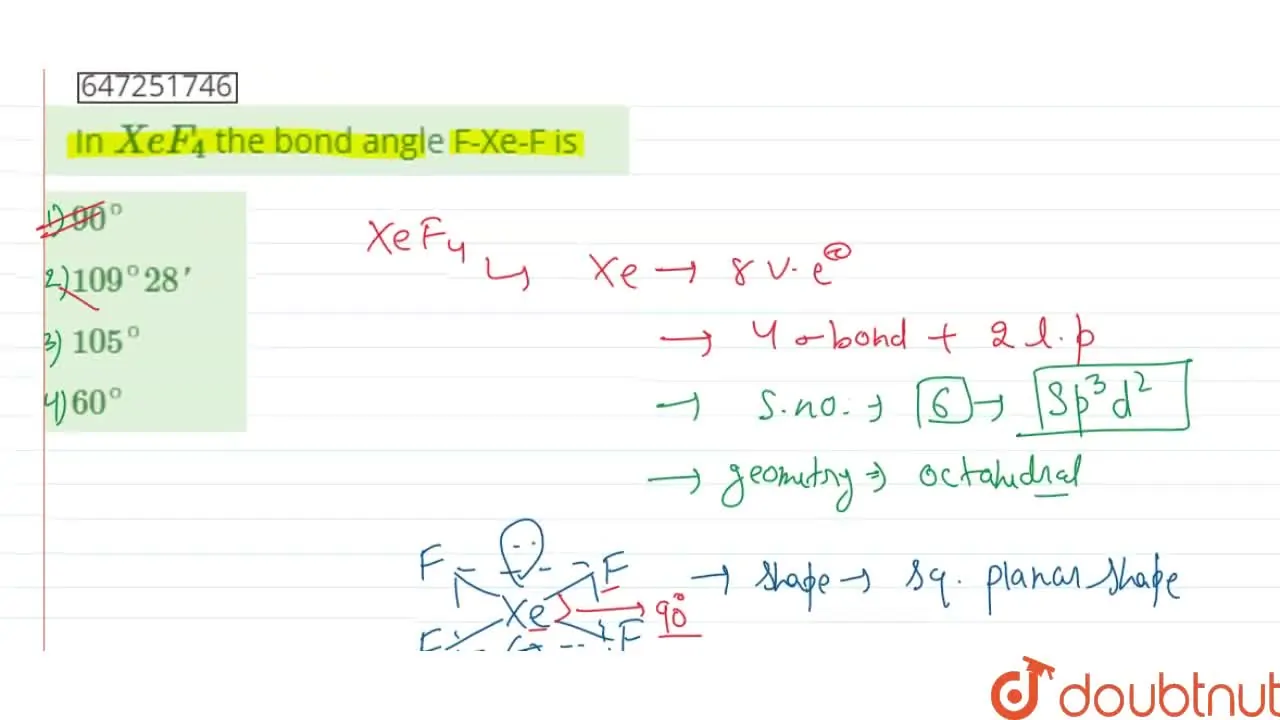 647251746
In XeF₄ the bond angle F-Xe-F is
1) 90°
2) 109°28′
3) 105°
4) 60°
XeF₄ ↳ Xe → 8 v.e⊖
→ 4 σ-bond + 2 l.p
→ S.no. → 6 → Sp³d²
→ geometry ⇒ octahedral
F F → shape → sq. planar shape
Xe → 90°
F F
doubtnut